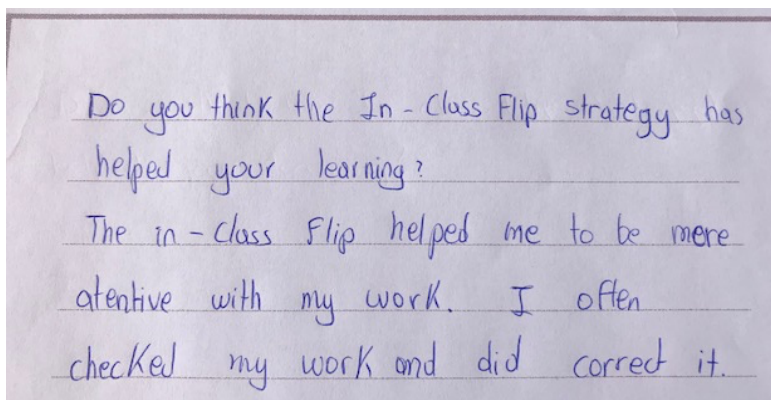 Do you think the In-Class Flip strategy has
helped your learning?
The in-Class Flip helped me to be mere
atentive with my work. I often
checked my work and did correct it.